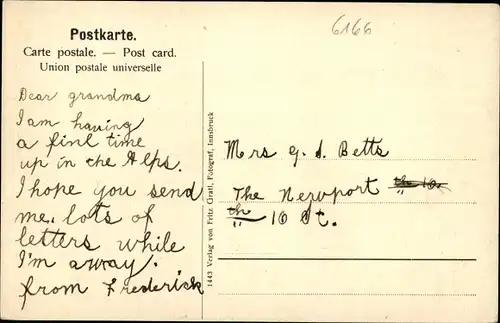 6166
Postkarte.
Carte postale. — Post card.
Union postale universelle
Dear grandma
I am having
a finl time
up in the Alps.
I hope you send
me. lots of
letters while
I'm away.
from Frederick
1443 Verlag von Fritz Gratl, Fotograf, Innsbruck
Mrs G. S. Betts
The Newport
th 10 St.